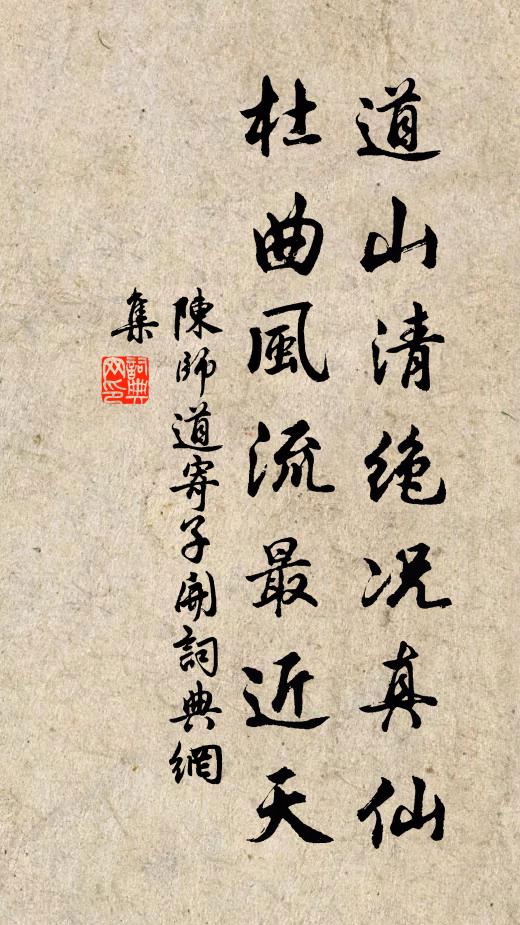 道山清绝况真仙
杜曲風流最近天
陳師道寄子開詞典網
集
詞典网印